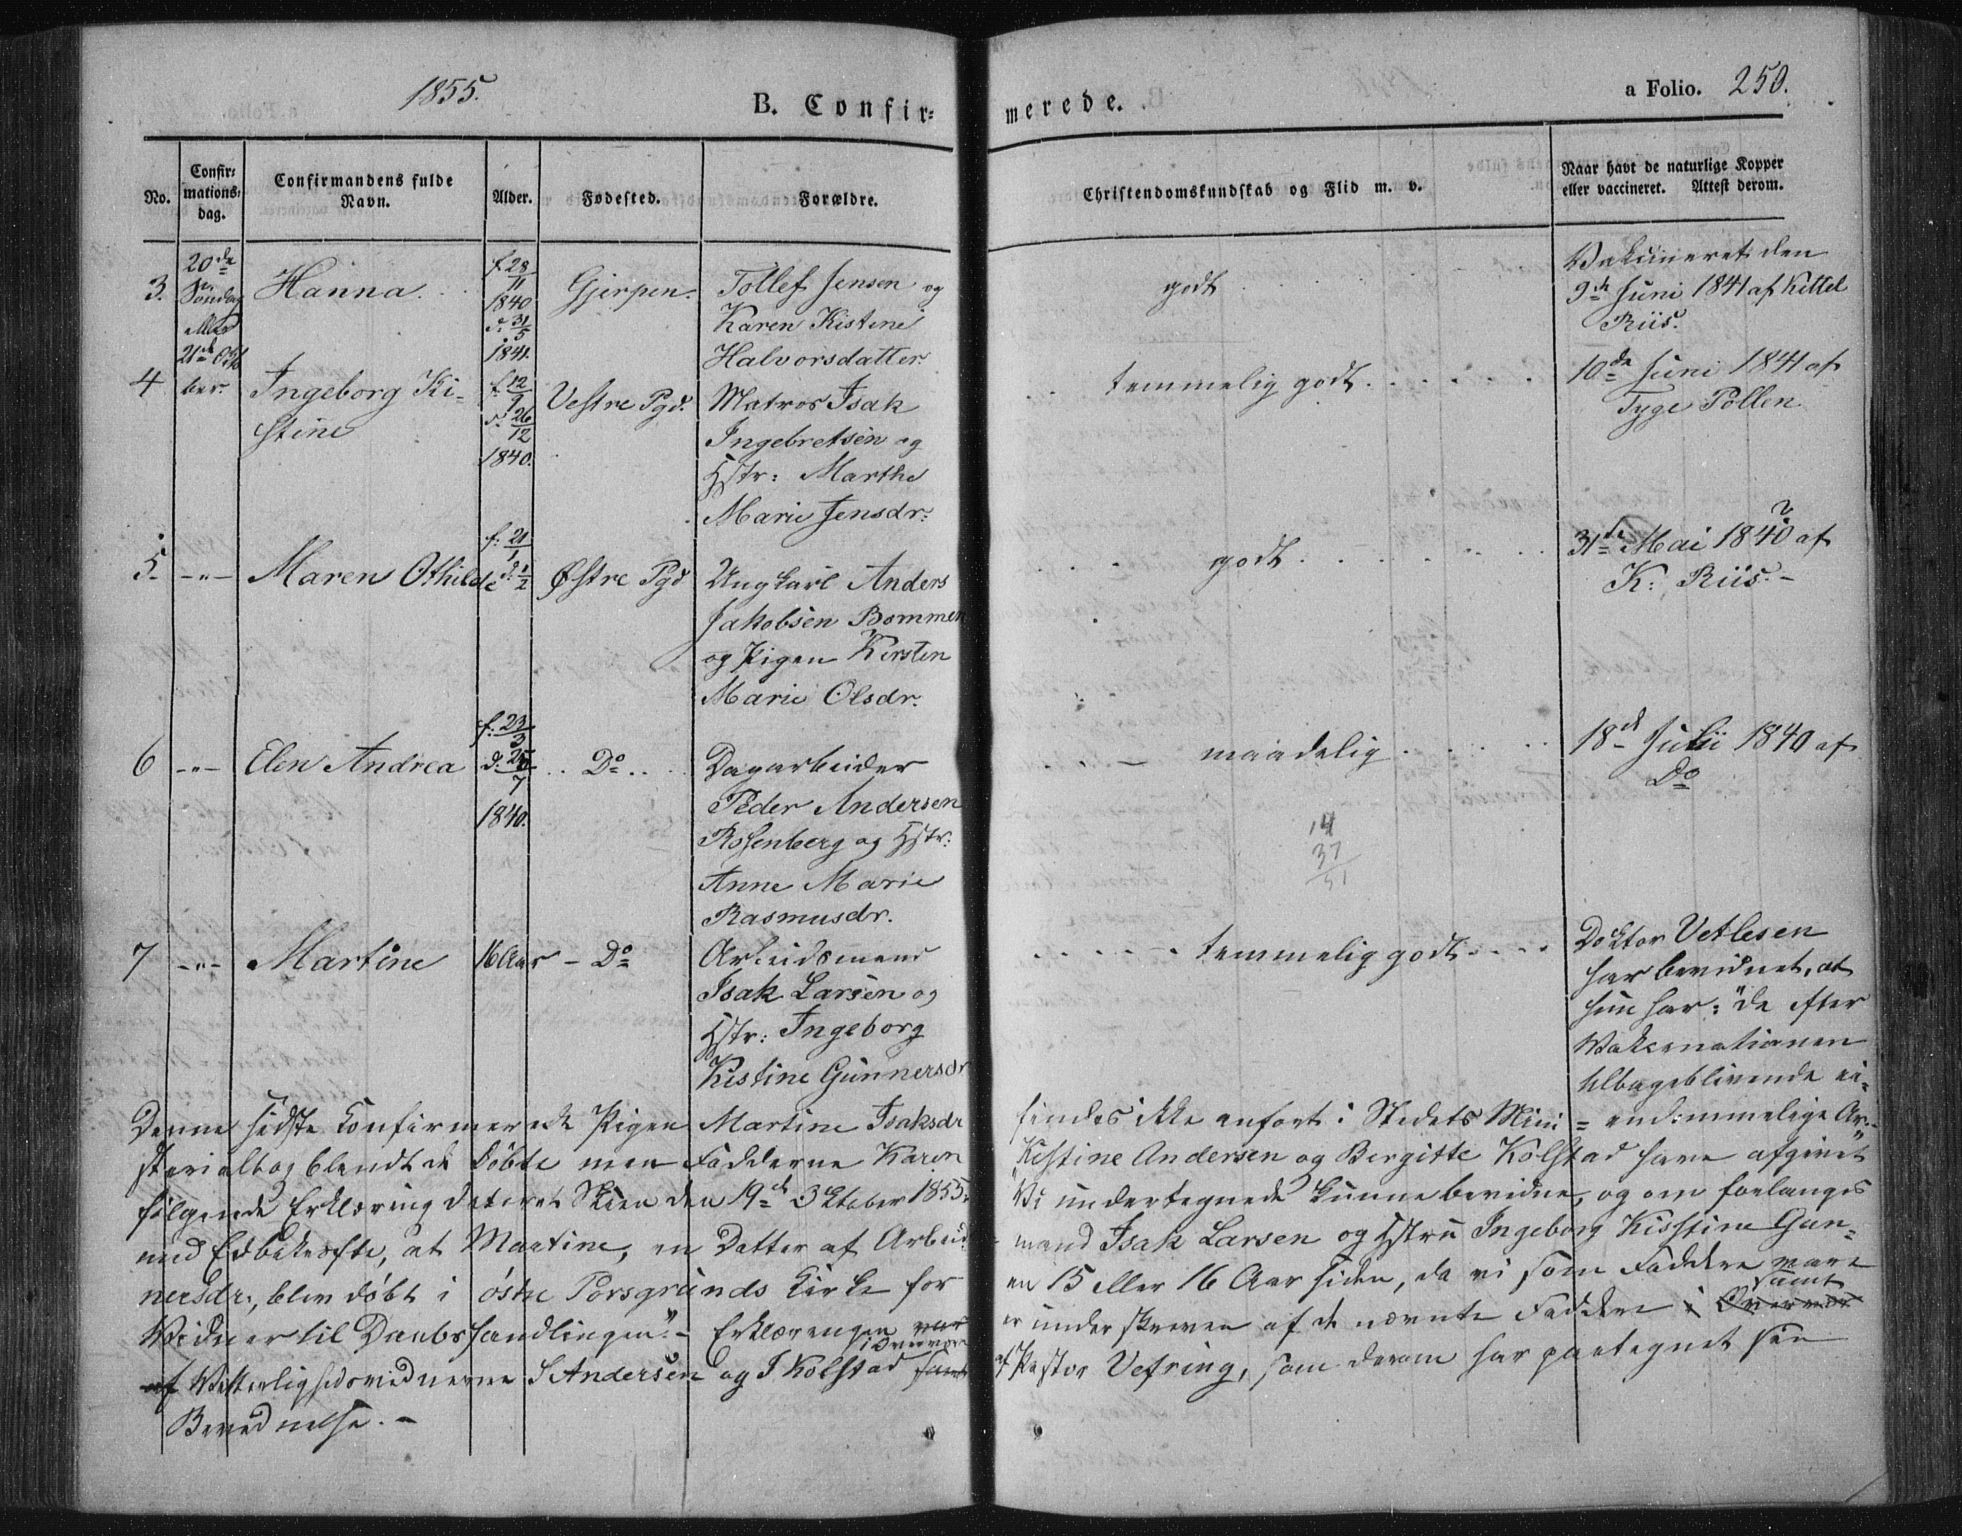 1855.
B. Confir=
merede.
a Folio. 250.
No.
Confir=
mations=
dag.
Confirmandens fulde
Navn.
Alder.
Fødested.
Forældre.
Christendomskundskab og Flid m. v.
Naar havt de naturlige Kopper
eller vaccineret. Attest derom.
20de
Søndag
21de Okto
ber.
3. Hanna.
f. 28/11
1840
d. 31/5
1841.
Gjerpen.
Tollef Jensen og
Karen Kistine
Halvorsdatter
godt
Vakcineret den
9de Juni 1841 af Kittel
Riis.
4 Ingeborg Ki-
stine
f. 12/9
d. 26/12
1840.
Vestre Pgd.
Matros Isak
Ingebretsen og
Hstr: Marthe
Marie Jensdr:
temmelig godt
10de Juni 1841 af
Tyge Pollen
5. -"- Maren Othilde
f: 21/1
d: 2/2
Østre Pgd
Ungkarl Anders
Jakobsen Bommen
og Pigen Kirsten
Marie Olsdr.
godt
?
31de Mai 1840 af
K: Riis. -
6 -"- Elen Andrea
f: 23/3
d: 25/7
1840.
Do
Dagarbeider
Peder Andersen
Rosenberg og Hstr:
Anne Marie
Rasmusdr.
maadelig
18de Julii 1840 af
Do
14
37
51
7 -"- Martine
16 Aar
- Do
Arbeidsmand
Isak Larsen og
Hstr: Ingeborg
Kistine Gunnersdr
temmelig godt
Doktor Vetlesen
har bevidnet, at
hun har: "de efter
Vakcinationen
tilbageblivende ei=
endommelige Ar."
Denne sidste Konfirmerede Pigen Martine Isaksdr findes ikke anført i Stedets Mini=
sterialbog blandt de døbte men Fadderne Karen Kistine Andersen og Bergitte Kolstad have afgivet
følgende Erklæring dateret Skien den 19de Oktober 1855: "Vi undertegnede kunne bevidne, og om forlanges
med Ed bekræfte, at Martine, en Datter af Arbeids-mand Isak Larsen og Hstru Ingeborg Kisstine Gun=
nersdr., blev døbt i østre Porsgrunds Kirke for en 15 eller 16 Aar siden, da vi som Faddere vare
Vidner til Daabshandlingen". - Erklæringen er underskreven af de nævnte Faddere samt
af Vitterlighedsvidnerne S Andersen og J Kolstad i Overvær af Pastor Vefring, som derom har paategnet sin
Bevidnelse. -